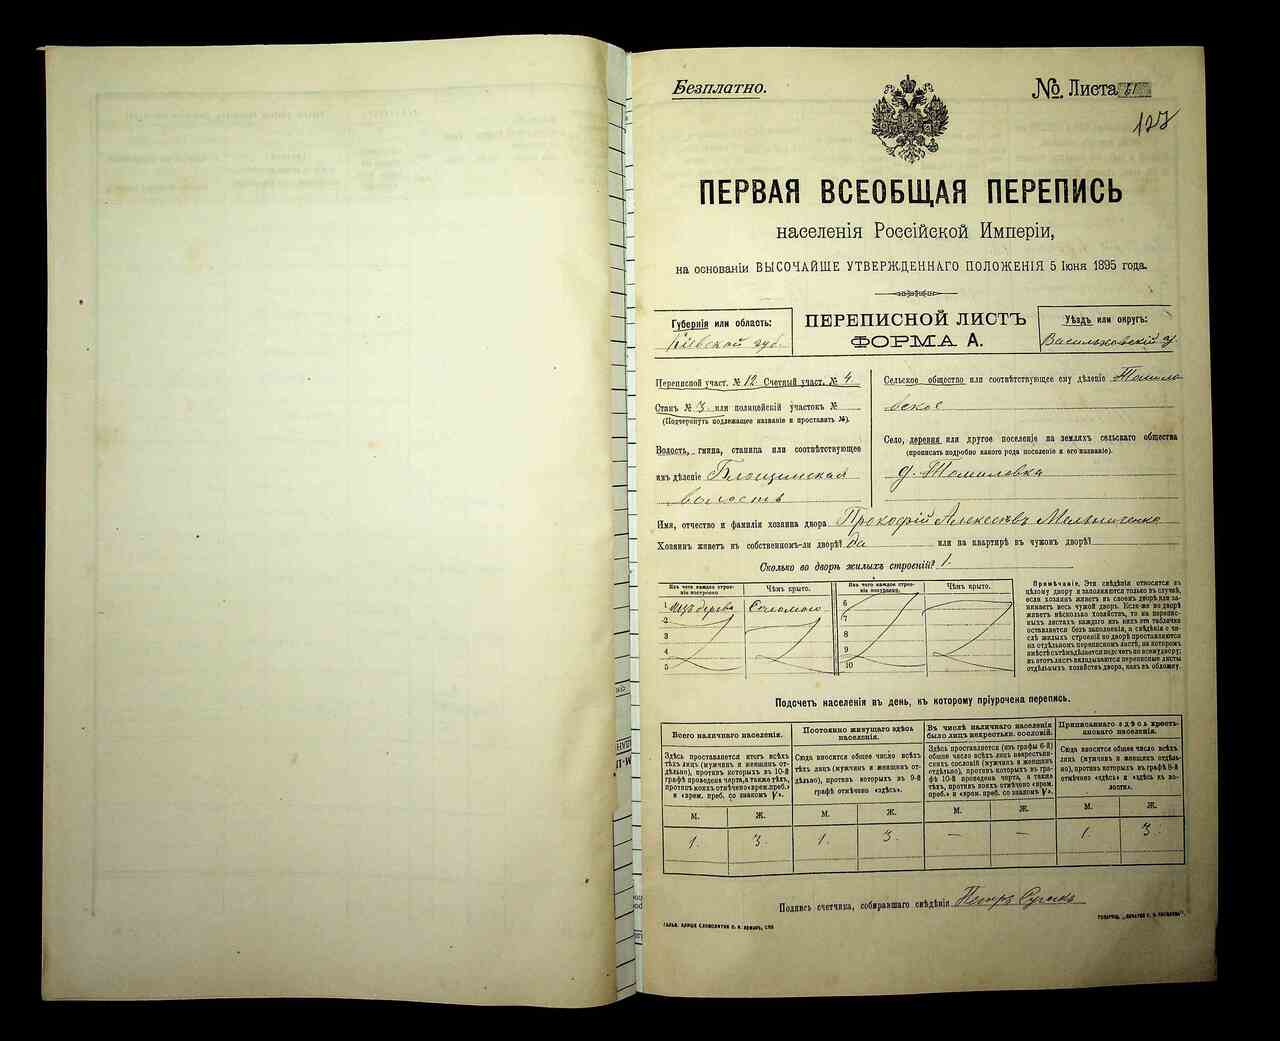 Безплатно.
№ Листа 61
127
ПЕРВАЯ ВСЕОБЩАЯ ПЕРЕПИСЬ
населенія Россійской Имперіи,
на основаніи ВЫСОЧАЙШЕ УТВЕРЖДЕННАГО ПОЛОЖЕНІЯ 5 Іюня 1895 года.
Губернія или область:
Кіевской губ.
ПЕРЕПИСНОЙ ЛИСТЪ
ФОРМА А.
Уѣздъ или округъ:
Васильковскій у.
Переписной участ. № 12 Счетный участ. № 4
Станъ № 3 или полицейскій участокъ №
(Подчеркнуть подлежащее названіе и проставить №).
Волость, гмина, станица или соотвѣтствующее
имъ дѣленіе Блощинская
волость
Сельское общество или соотвѣтствующее ему дѣленіе Томило
вское
Село, деревня или другое поселеніе на земляхъ сельскаго общества
(прописать подробно какого рода поселеніе и его названіе).
д. Томиловка
Имя, отчество и фамилія хозяина двора Прокофій Алексѣевъ Мельниченко
Хозяинъ живетъ въ собственномъ-ли дворѣ? да или на квартирѣ въ чужомъ дворѣ?
Сколько во дворѣ жилыхъ строеній? 1.
Изъ чего каждое строе-
ніе построено
Чѣмъ крыто.
Изъ чего каждое строе-
ніе построено.
Чѣмъ крыто.
1 Изъ дерева Соломою
2
3
4
5
6
7
8
9
10
Примѣчаніе. Эти свѣдѣнія относятся къ
цѣлому двору и заполняются только въ случаѣ,
если хозяинъ живетъ въ своемъ дворѣ или за-
нимаетъ весь чужой дворъ. Если-же во дворѣ
живетъ нѣсколько хозяйствъ, то на перепис-
ныхъ листахъ каждаго изъ нихъ эта табличка
оставляется безъ заполненія, а свѣдѣнія о чи-
слѣ жилыхъ строеній во дворѣ проставляются
на отдѣльномъ переписномъ листѣ, на которомъ
вмѣстѣ съ тѣмъ дѣлается подсчетъ по всему двору;
въ этотъ листъ вкладываются переписные листы
отдѣльныхъ хозяйствъ двора, какъ въ обложку.
Подсчетъ населенія въ день, къ которому пріурочена перепись.
Всего наличнаго населенія.
Здѣсь проставляется итогъ всѣхъ
тѣхъ лицъ (мужчинъ и женщинъ от-
дѣльно), противъ которыхъ въ 10-й
графѣ проведена черта, а также тѣхъ,
противъ коихъ отмѣчено «врем. преб.»
и «врем. преб. со знакомъ V».
Постоянно живущаго здѣсь
населенія.
Сюда вносится общее число всѣхъ
тѣхъ лицъ (мужчинъ и женщинъ от-
дѣльно), противъ которыхъ въ 9-й
графѣ отмѣчено «здѣсь».
Въ числѣ наличнаго населенія
было лицъ некрестьян. сословій.
Здѣсь проставляется (изъ графы 6-й)
общее число всѣхъ лицъ некрестьян-
скихъ сословій (мужчинъ и женщинъ
отдѣльно), противъ которыхъ въ гра-
фѣ 10-й проведена черта, а также
тѣхъ, противъ коихъ отмѣчено «врем.
преб.» и «врем. преб. со знакомъ V».
Приписаннаго здѣсь кресть-
янскаго населенія.
Сюда вносится общее число всѣхъ
лицъ (мужчинъ и женщинъ отдѣль-
но), противъ которыхъ въ графѣ 8-й
отмѣчено «здѣсь» и «здѣсь въ во-
лости».
М. Ж. М. Ж. М. Ж. М. Ж.
1. 3. 1. 3. — — 1. 3.
Подпись счетчика, собиравшаго свѣдѣнія Петръ